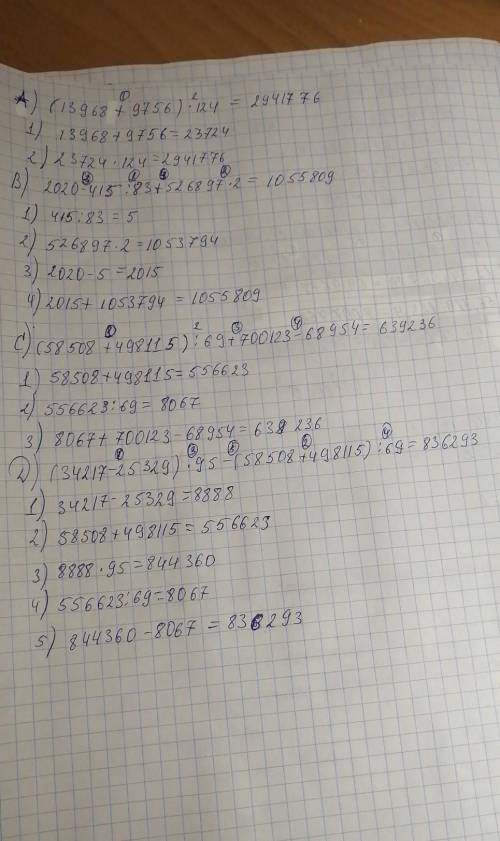 A) (13968 + 9756) · 124 = 2941776
1) 13968 + 9756 = 23724
2) 23724 · 124 = 2941776
B) 2020 - 415 : 83 + 526897 · 2 = 1055809
1) 415 : 83 = 5
2) 526897 · 2 = 1053794
3) 2020 - 5 = 2015
4) 2015 + 1053794 = 1055809
C) (58508 + 498115) : 69 + 700123 - 68954 = 639236
1) 58508 + 498115 = 556623
2) 556623 : 69 = 8067
3) 8067 + 700123 - 68954 = 639 236
D) (34217 - 25329) · 95 - (58508 + 498115) : 69 = 836293
1) 34217 - 25329 = 8888
2) 58508 + 498115 = 556623
3) 8888 · 95 = 844360
4) 556623 : 69 = 8067
5) 844360 - 8067 = 836293